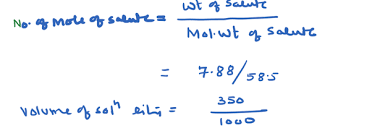 No. of Mole of Salute = Wt of Salute / Mol. Wt of Salute
= 7.88/58.5
Volume of solⁿ in = 350 / 1000